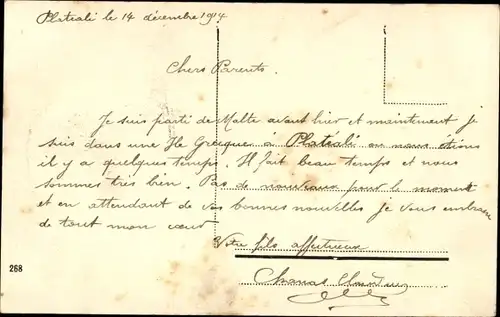 Platéali le 14 décembre 1914
Chers Parents.
Je suis parti de Malte avant hier et maintenant je
suis dans une Ile Grecque à Platéali ou nous étions
il y a quelques temps. Il fait beau temps et nous
sommes très bien. Pas de nouveaux pour le moment
et en attendant de vos bonnes nouvelles je vous embrasse
de tout mon cœur
Votre fils affectueux
268